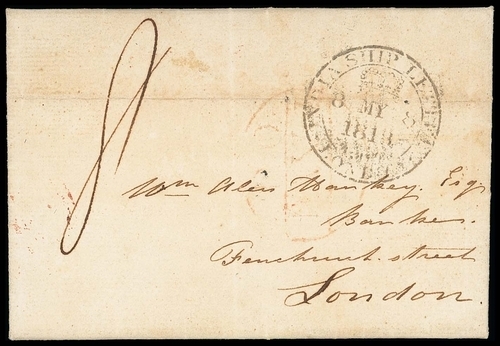 INDIA SHIP LETTER
8 MY
1818
Wm Alers Hankey. Esq
Banker.
Fenchurch street
London.